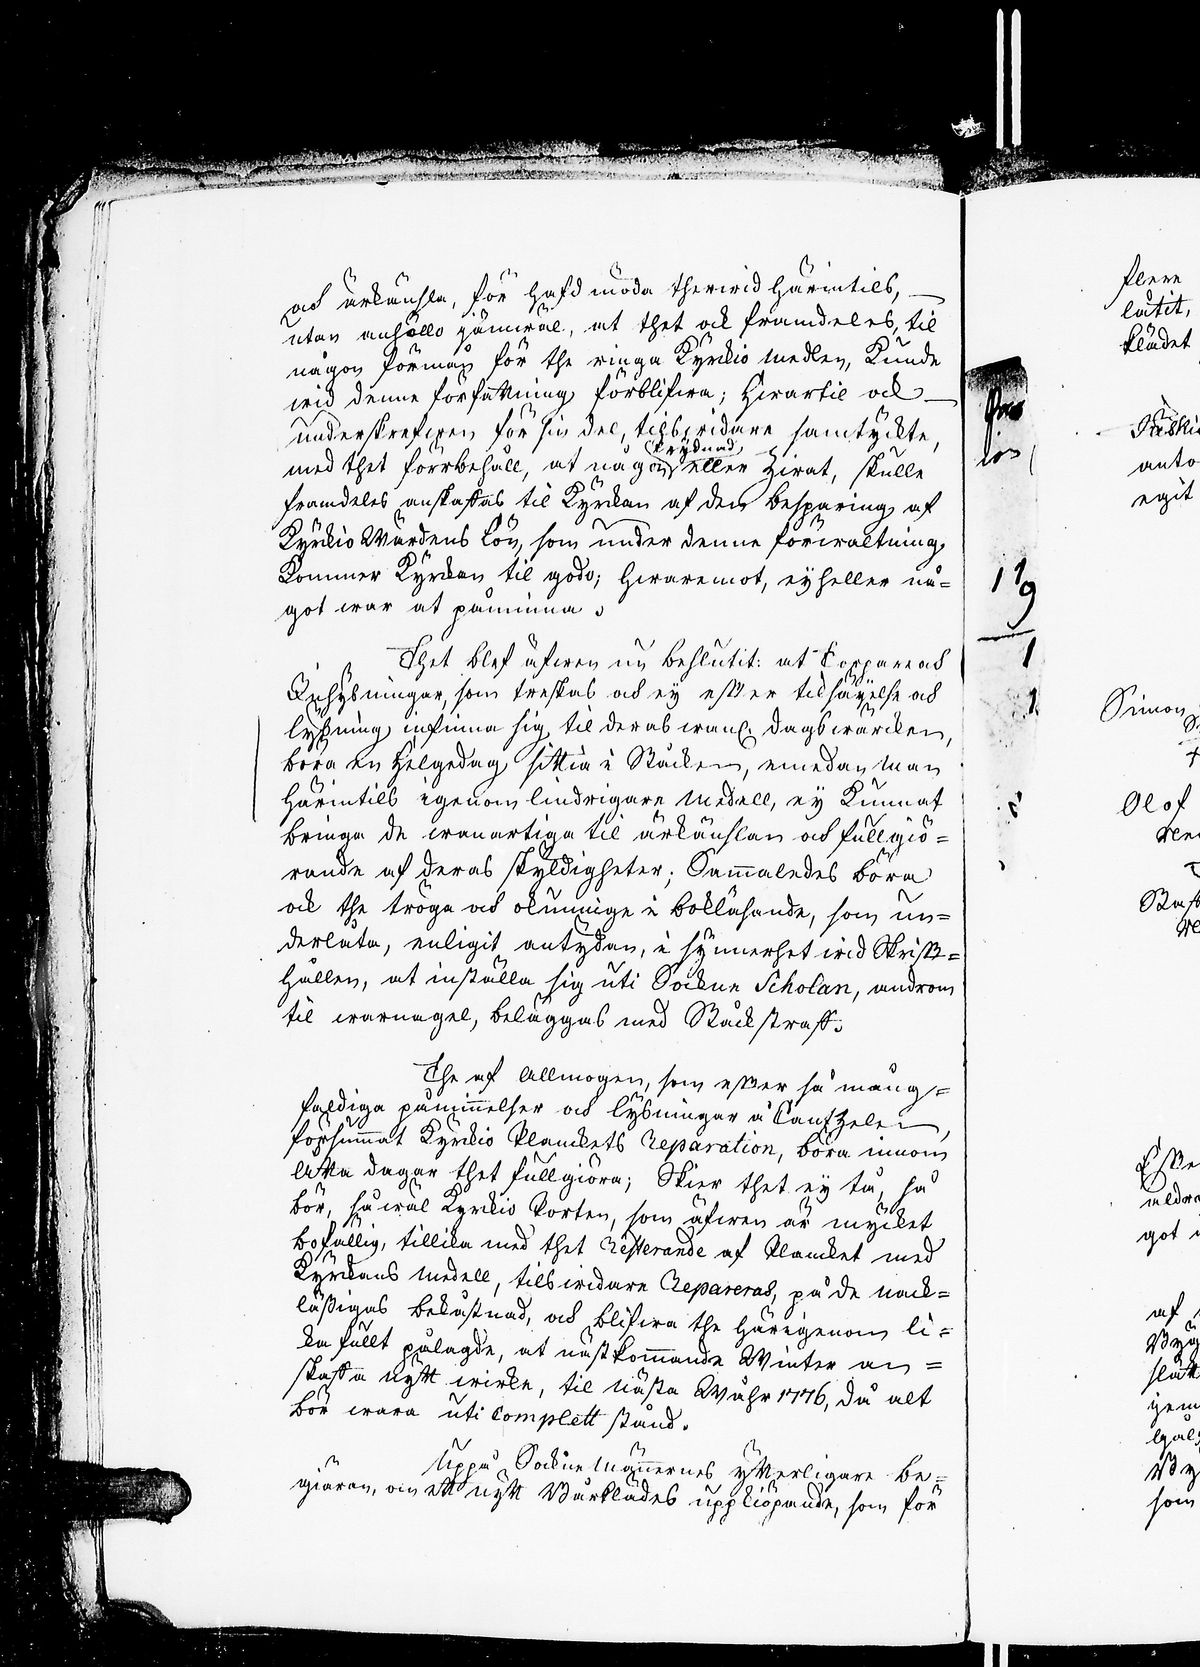 och ärkänsla, för hafd möda therwid härintils,
utan anhöllo jämwäl, at thet ock framdeles, til
någon förmån för the ringa Kyrckio medlen, Kunde
wid denne författning förblifwa; Hwartil ock
underskrefwen för sin del, tilswidare samtyckte,
med thet förrbehåll, at någon prydnad eller Zirat, skulle
framdeles anskaffas til Kyrckan af den besparing af
Kyrckio Wärdens Lön, som under denne förwaltning
Kommer Kyrckan til godo; hwaremot, ey heller nå-
got war at påminna.
Thet blef äfwen nu beslutit: at Torpare och
Inhysningar, som treskas och ey efter tilsäyelse och
lysning infinna sig til deras wanl. dagswärcken,
böra en Helgedag sittia i Stocken, emedan man
härintils igenom lindrigare medell, ey Kunnat
bringa de wanartiga til ärkänslan och fullgiö-
rande af deras skyldigheter; Sammaledes böra
ock the tröga och okunnige i bokläsande, som un-
derlåta, enligit antydan, i synnerhet wid Skrift-
hållen, at inställa sig uti Sockne Scholan, androm
til warnagel, beläggas med Stockstraff.
The af Allmogen, som efter så mång-
faldiga påminnelser och lysningar å Cantzelen,
försummat Kyrckio Planckets Reparation, böra innom
otta dagar thet fullgiöra; Skier thet ey tå, så
bör, så wäl Kyrckio Porten, som äfwen är mycket
bofällig, tillika med thet Resterande af Plancket med
Kyrckans medell, tilswidare Repareras, på de nack-
lässigas bekåstnad, och blifwa the härigenom li-
ka fullt pålagde, at nästkommande Winter an-
skaffa nytt wirke, til nästa Wåhr 1776, då alt
bör wara uti complett stånd.
Uppå Sockne Männernes ytterligare be-
giäran, om ett nytt Bårklädes uppkiöpande, som för
flere
låtit,
klädet
anto
egit
119
1
1
Simon
Olof
aldra
got
af
som